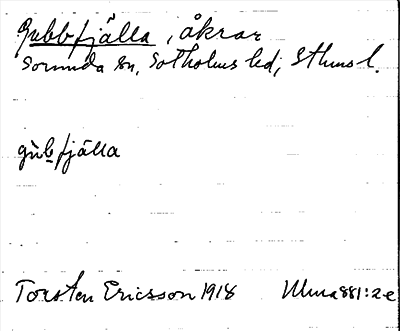 Gubbfjälla, åkrar
Sorunda sn, Sotholms hd, Sthms l.
gùbfjälla
Torsten Ericsson 1918 Ulma 881:2e